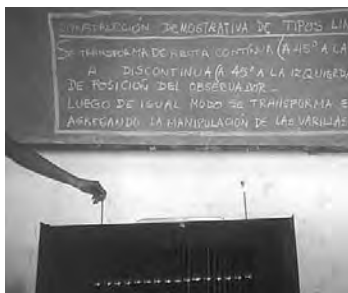 CONSTRUCCIÓN DEMOSTRATIVA DE TIPOS LIN
SE TRANSFORMA DE RECTA CONTÍNUA (A 45° A LA
A DISCONTINUA (A 45° A LA IZQUIERDA
DE POSICIÓN DEL OBSERVADOR -
LUEGO DE IGUAL MODO SE TRANSFORMA E
AGREGANDO LA MANIPULACIÓN DE LAS VARILLAS